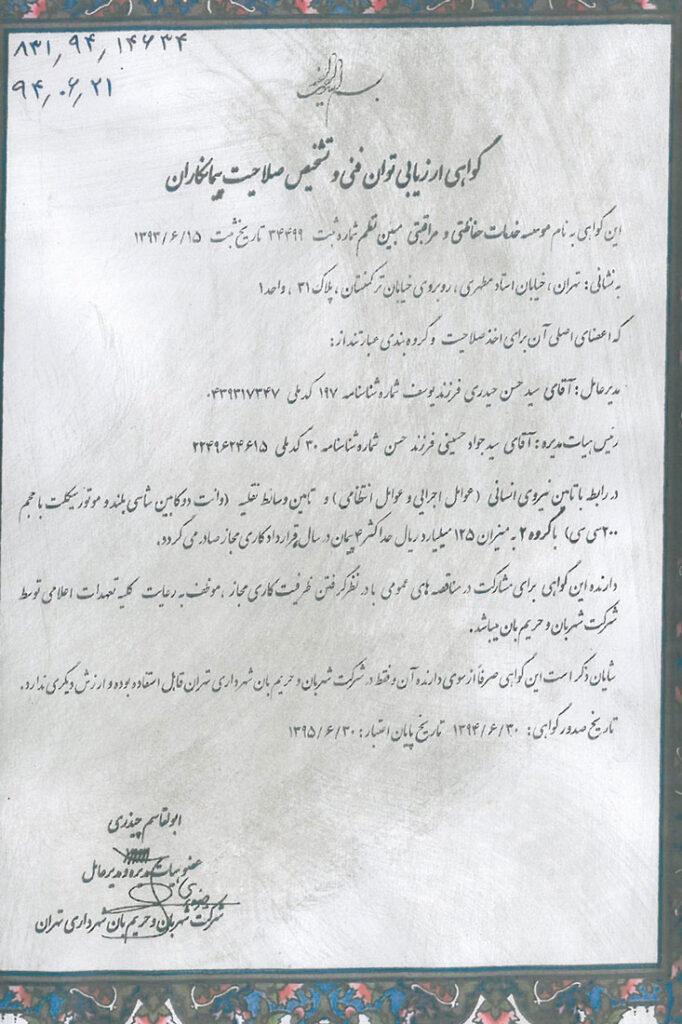 ۸۳۱٫۹۴٫۱۴۶۳۴
۹۴٫۰۶٫۲۱
گواهی ارزیابی توان فنی و تشخیص صلاحیت پیمانکاران
این گواهی به نام موسسه خدمات حفاظتی و مراقبتی مبین نظم شماره ثبت ۳۴۴۹۹ تاریخ ثبت ۱۳۹۳/۶/۱۵
به نشانی: تهران، خیابان استاد مطهری، روبروی خیابان ترکمنستان، پلاک ۳۱، واحد ۱
که اعضای اصلی آن برای اخذ صلاحیت و گروه بندی عبارتند از:
مدیرعامل: آقای سید حسن حیدری فرزند یوسف شماره شناسنامه ۱۹۷ کد ملی ۰۴۳۹۳۱۷۳۴۷
رئیس هیات مدیره: آقای سید جواد حسینی فرزند حسن شماره شناسنامه ۳۰ کد ملی ۲۲۴۹۶۲۴۶۱۵
در رابطه با تامین نیروی انسانی (عوامل اجرایی و عوامل انتظامی) و تامین وسائط نقلیه (وانت دو کابین شاسی بلند و موتورسیکلت با حجم
۲۰۰ سی سی) با گروه ۲ به میزان ۱۲۵ میلیارد ریال حداکثر ۴ پیمان در سال قرارداد کاری مجاز صادر می گردد.
دارنده این گواهی برای مشارکت در مناقصه های عمومی با در نظر گرفتن ظرفیت کاری مجاز، موظف به رعایت کلیه تعهدات اعلامی توسط
شرکت شهربان و حریم بان میباشد.
شایان ذکر است این گواهی صرفاً از سوی دارنده آن و فقط در شرکت شهربان و حریم بان شهرداری تهران قابل استفاده بوده و ارزش دیگری ندارد.
تاریخ صدور گواهی: ۱۳۹۴/۶/۳۰ تاریخ پایان اعتبار: ۱۳۹۵/۶/۳۰
ابوالقاسم چیذری
عضو هیات مدیره و مدیرعامل
شرکت شهربان و حریم بان شهرداری تهران